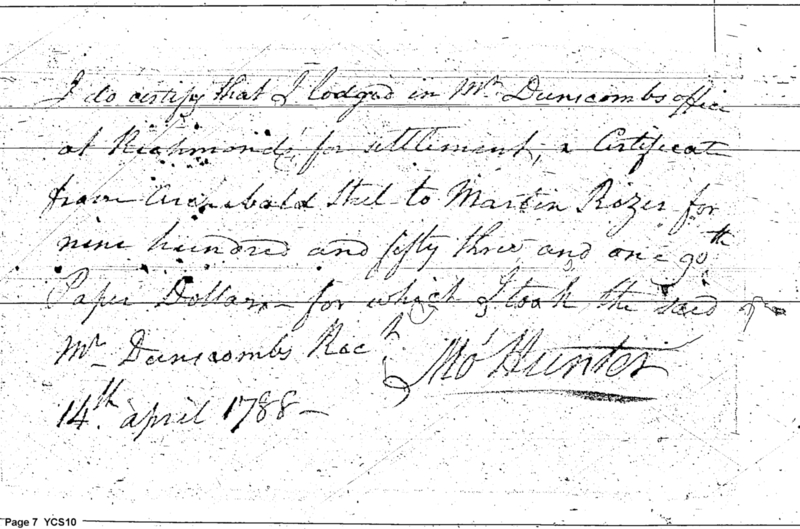 I do certify that I lodged in Mr Dunscombs office
at Richmond, for settlement, a Certificate
from Archibald Steel to Martin Rozer for
nine hundred and fifty three and one 90th
Paper Dollars – for which I took the said
Mr Dunscombs Rect
Mo Hunter
14th april 1788 –
Page 7 YCS10